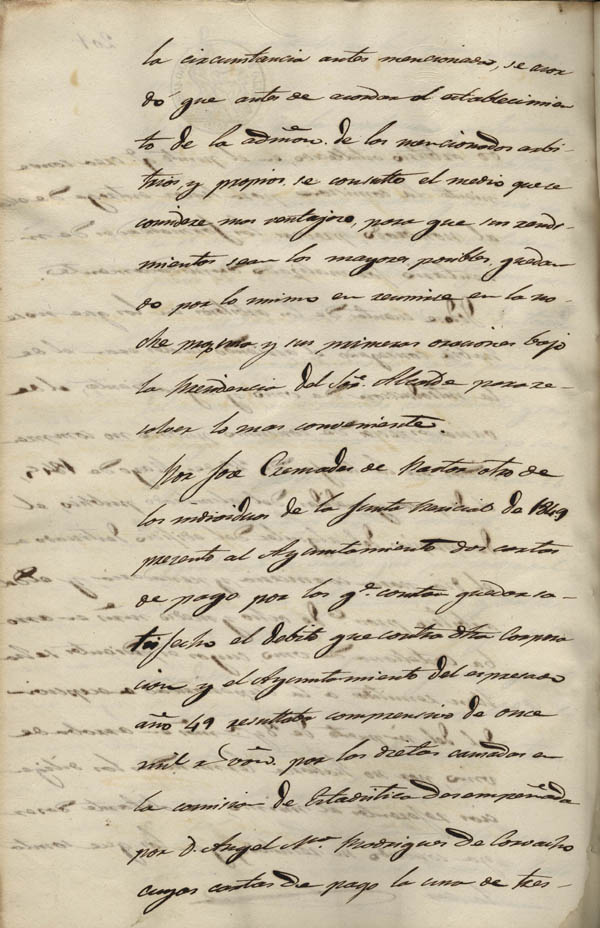 la circunstancia antes mencionada, se acor
dó que antes de acordar el establecimien
to de la admon. de los mencionados arbi-
trios y propios, se consulte el medio que se
considere mas ventajoso, para que sus rendi-
mientos sean los mayores posibles, quedan
do por lo mismo en reunirse en la no-
che proxima y sus primeras oraciones bajo
la Presidencia del Sor. Alcalde para re-
solver lo mas conveniente.
Por José de Pastor otro de
los individuos de la Junta Pericial de 1849
presentó al Ayuntamiento dos cartas
de pago por los qe. constan quedar sa-
tisfecho el debito que contra dha Corpora
cion y el Ayuntamiento del espresado
año 49 resultaba comprensivo de once
mil r von. por las dietas causadas en
la comision de Estadistica desempeñada
por D. Angel Ma Rodriguez de
cuyas cartas de pago la una de tres-